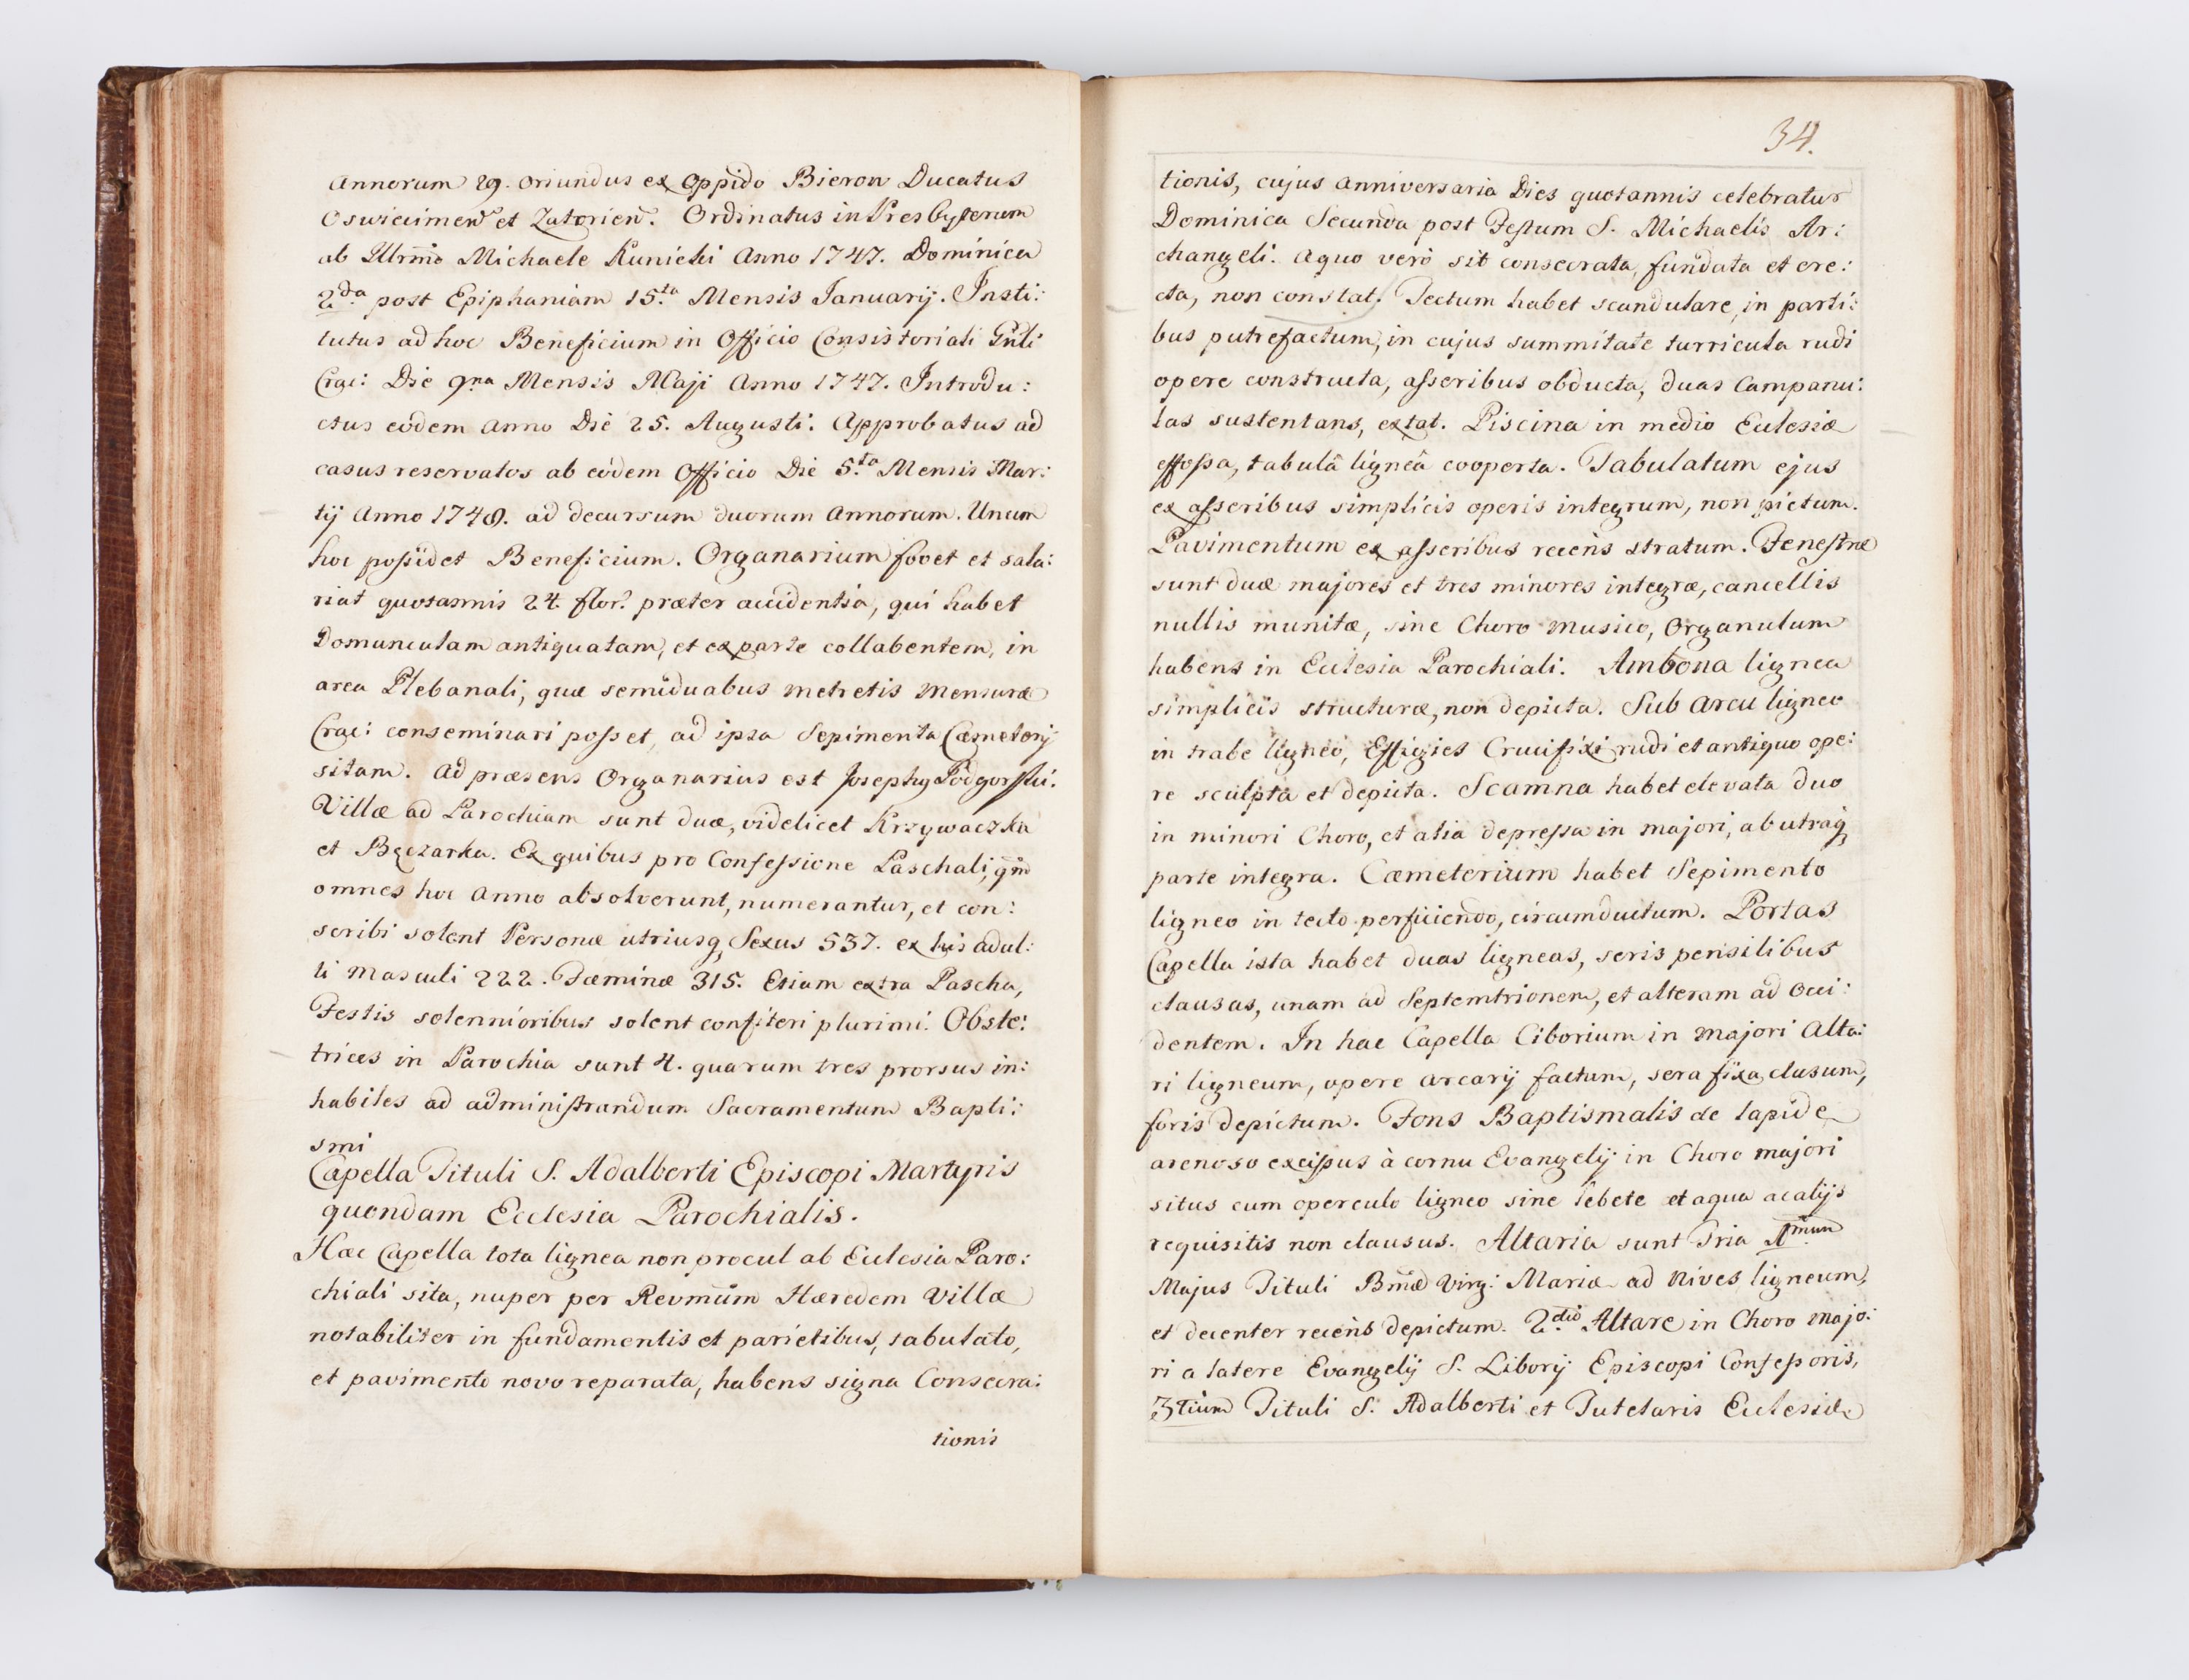 Annorum 29. oriundus ex Oppido Bieron Ducatus
Oswiecimen et Zatorien. Ordinatus in Presbyterum
ab Illrmo Michaele Kunicki Anno 1747. Dominica
2da post Epiphaniam 15ta Mensis Januarij. Insti:
tutus ad hoc Beneficium in Officio Consistoriali Gnli
Crac: Die 9na Mensis Maji Anno 1747. Introdu:
ctus eodem Anno Die 25. Augusti. Approbatus ad
casus reservatos ab eodem Officio Die 5ta Mensis Mar:
tij Anno 1748. ad decursum duorum Annorum. Unum
hoc possidet Beneficium. Organarium fovet et sala:
riat quotannis 24. flor. præter accidentia, qui habet
Domunculam antiquatam, et ex parte collabentem, in
area Plebanali, quæ semiduabus metretis mensuræ
Crac: conseminari posset, ad ipsa Sepimenta Cæmeterij
sitam. Ad præsens Organarius est Josephus Podgorski.
Villæ ad Parochiam sunt duæ, videlicet Krzywaczka
et Bęczarka. Ex quibus pro Confessione Paschali, qm̄
omnes hoc Anno absolverunt, numerantur, et con:
scribi solent Personæ utriusq Sexus 537. ex his adul:
ti Masculi 222. Fæminæ 315. Etiam extra Pascha,
Festis solennioribus solent confiteri plurimi. Obste:
trices in Parochia sunt 4. quarum tres prorsus in:
habiles ad administrandum Sacramentum Bapti:
smi
Capella Tituli S. Adalberti Episcopi Martyris
quondam Ecclesia Parochialis.
Hæc Capella tota lignea non procul ab Ecclesia Paro:
chiali sita, nuper per Revmum Hæredem Villæ
notabiliter in fundamentis et parietibus, tabulato,
et pavimento novo reparata, habens signa Consecra:
tionis
34.
tionis, cujus anniversaria Dies quotannis celebratur
Dominica Secunda post Festum S. Michaelis Ar:
changeli. Aquo vero sit consecrata, fundata et ere:
cta, non constat. Tectum habet scandulare, in parti:
bus putrefactum, in cujus summitate turricula rudi
opere constructa, asseribus obducta, duas Campanu:
las sustentans, extat. Piscina in medio Ecclesiæ
effossa, tabulâ ligneâ cooperta. Tabulatum ejus
ex asseribus simplicis operis integrum, non pictum.
Pavimentum ex asseribus recens stratum. Fenestræ
sunt duæ majores et tres minores integræ, cancellis
nullis munitæ, sine Choro musico, Organulum
habens in Ecclesia Parochiali. Ambona lignea
simplicis structuræ, non depicta. Sub Arcu ligneo
in trabe ligneo, Effigies Crucifixi rudi et antiquo ope:
re sculpta et depicta. Scamna habet elevata duo
in minori Choro, et alia depressa in majori, ab utraq
parte integra. Cæmeterium habet Sepimento
ligneo in tecto perficiendo, circumductum. Portas
Capella ista habet duas ligneas, seris pensilibus
clausas, unam ad Septemtrionem, et alteram ad Occi:
dentem. In hac Capella Ciborium in majori Alta:
ri ligneum, opere arcarij factum, sera fixa clusum,
foris depictum. Fons Baptismalis de lapide
arenoso excissus à cornu Evangelij in Choro majori
situs cum operculo ligneo sine lebete et aqua ac alijs
requisitis non clausus. Altaria sunt Tria 1mum
Majus Tituli Bmæ Virg: Mariæ ad Nives, ligneum,
et decenter recens depictum. 2dum Altare in Choro majo:
ri a latere Evangelij S. Liborij Episcopi Confessoris,
3tium Tituli S. Adalberti et Tutelaris Ecclesiæ